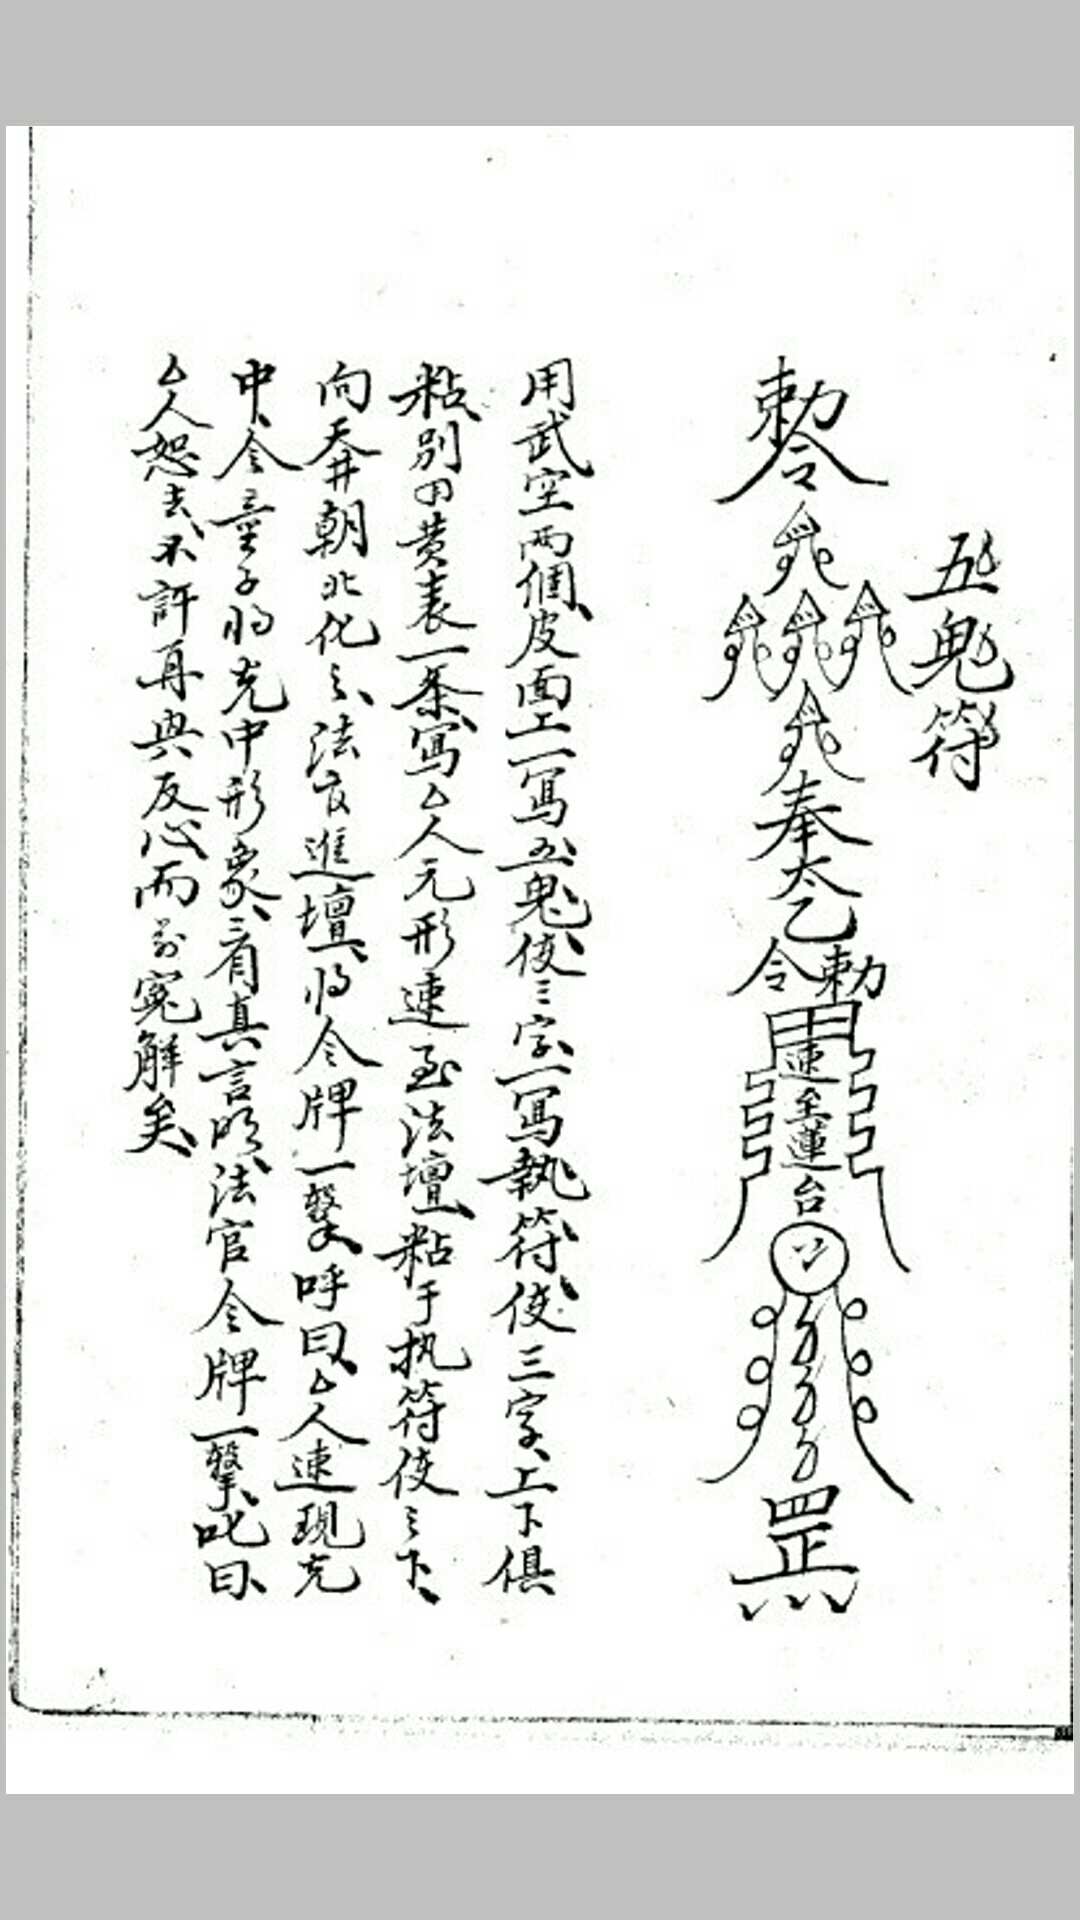 五鬼符
勅令
奉太乙
令勅
速至蓮台
罡
用武空兩個皮面上一寫五鬼使三字一寫執符使三字上下俱
粘別用黄表一条寫厶人元形速至法壇粘于执符使之下
向天井朝北化之法官進壇将令牌一擊呼曰厶人速現光
中令童子将光中形象看真言明法官令牌一擊叱曰
厶人恕去不許再與反心而冤解矣